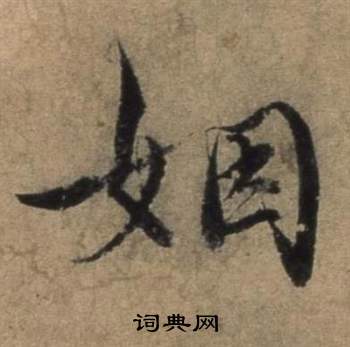 姻
词典网